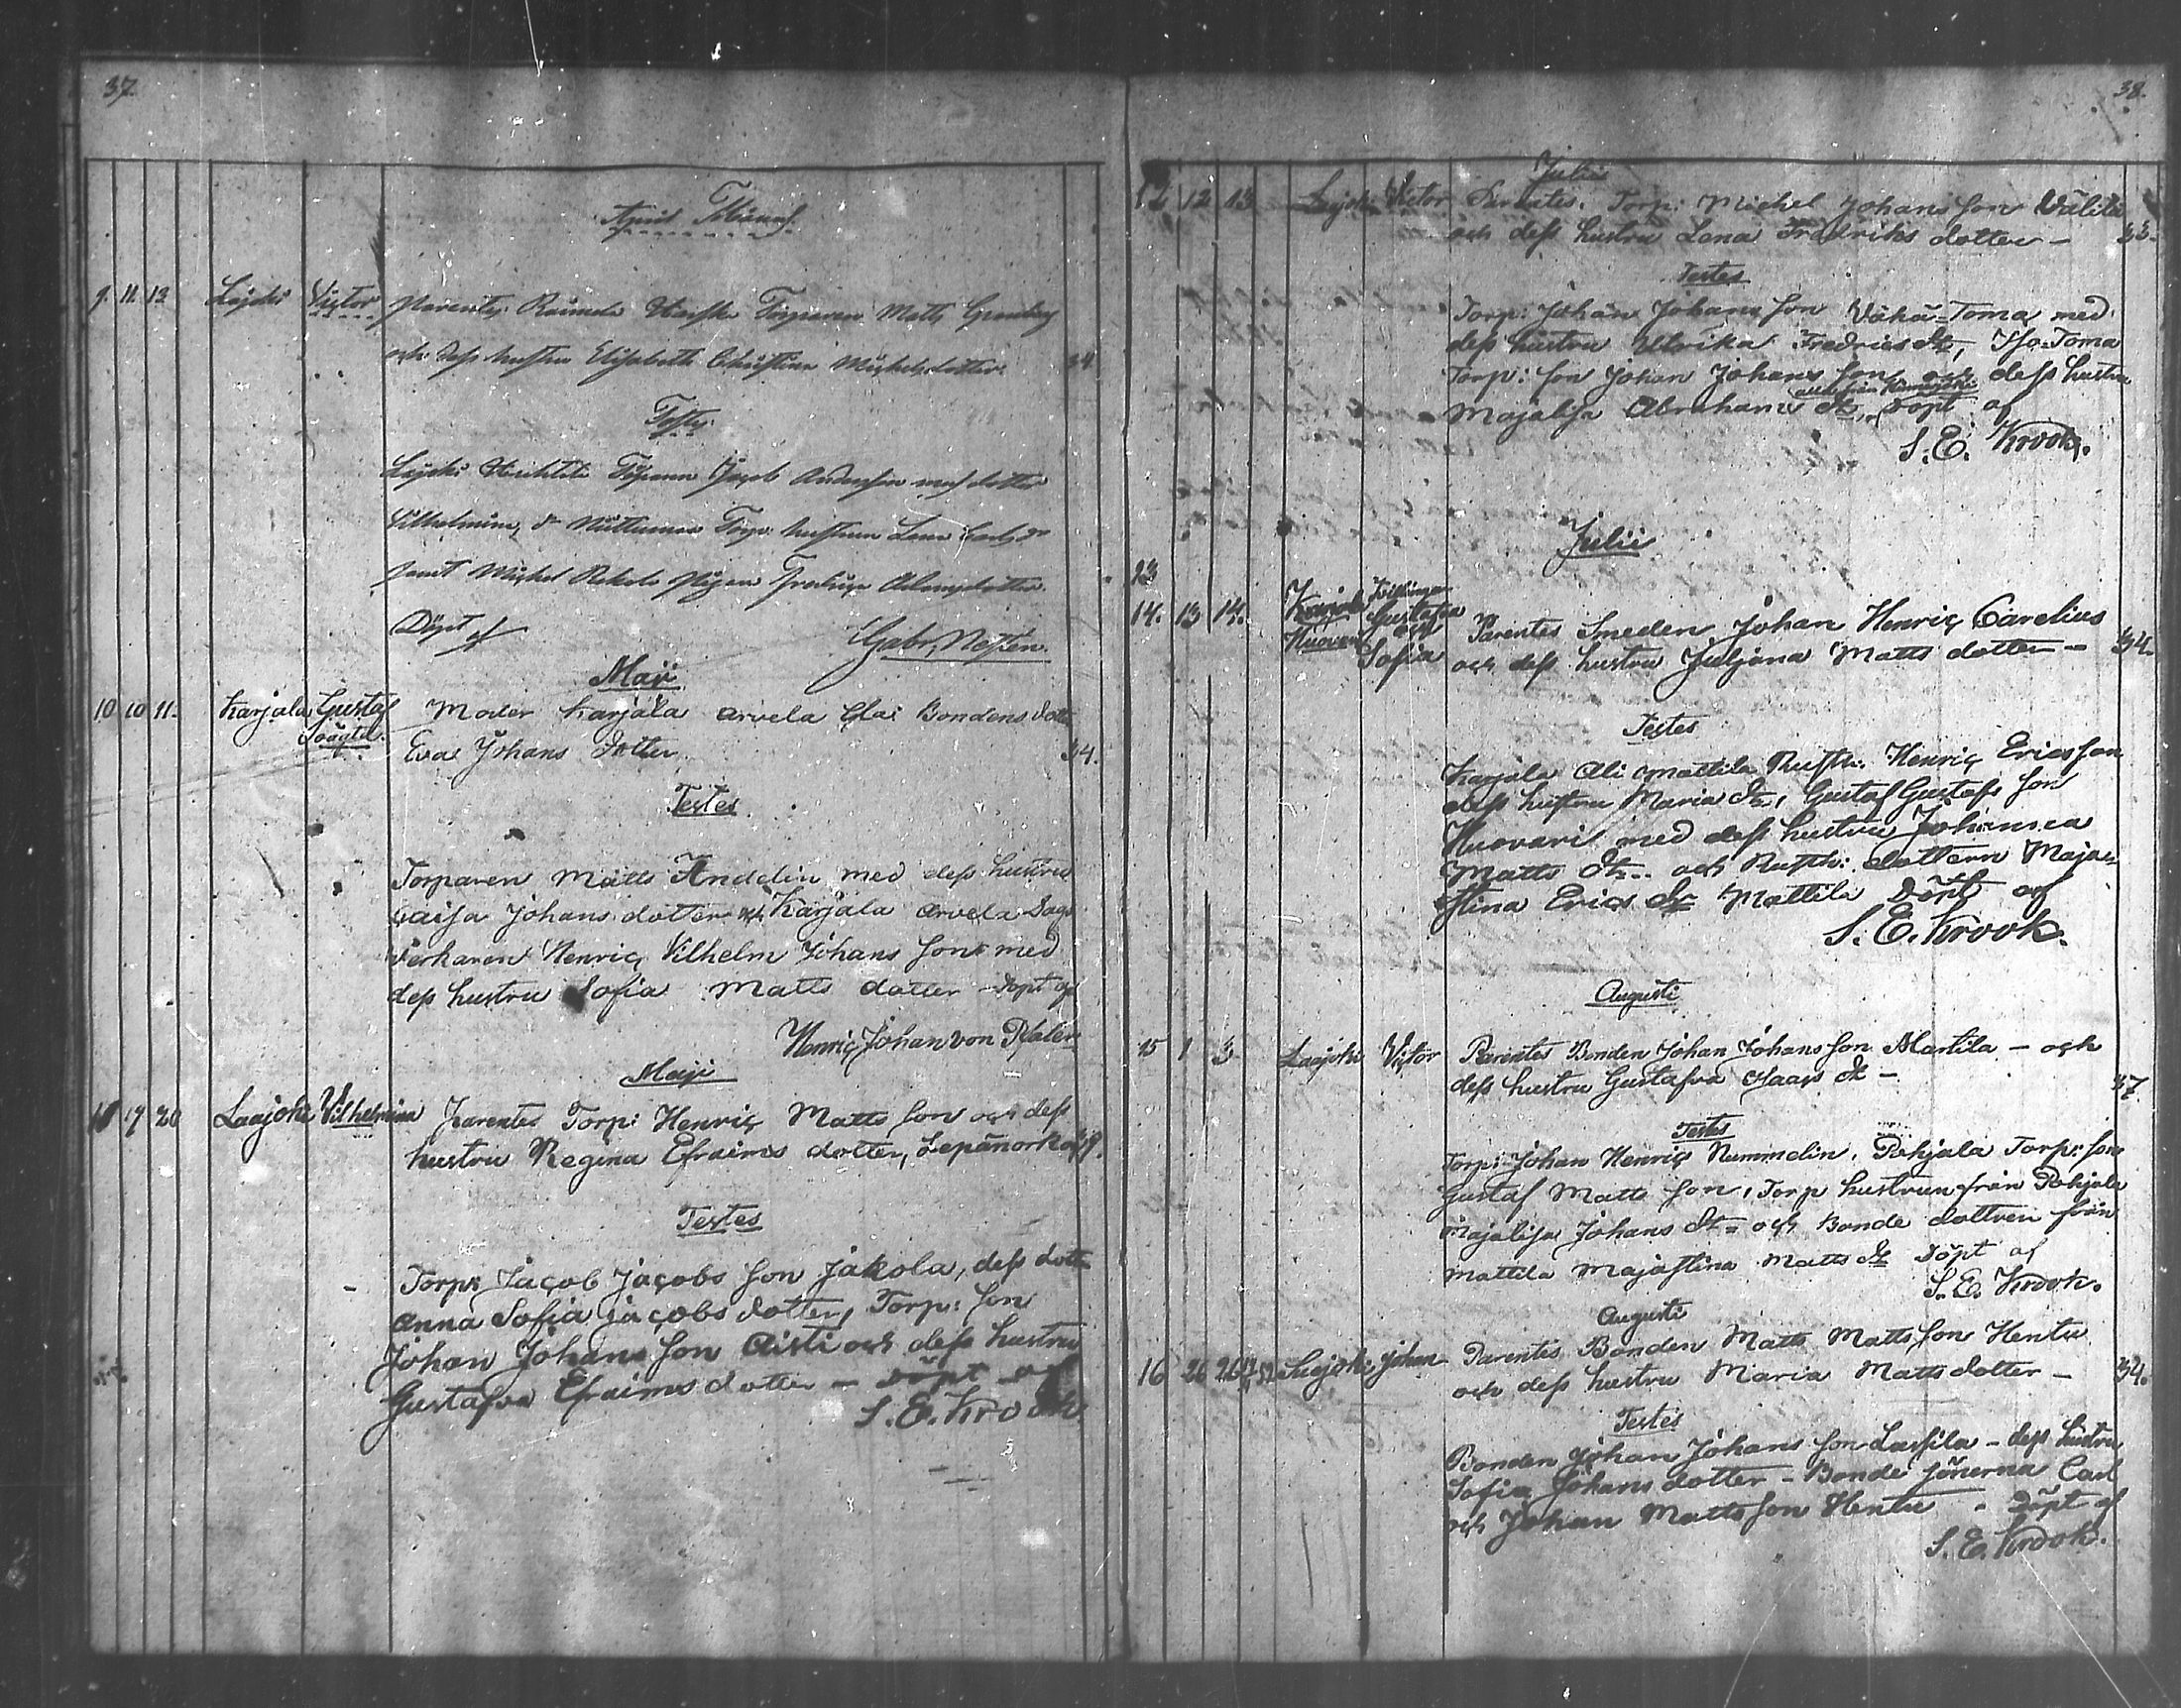 37.
April
9. 11. 12 Lajoki Victor Parentes Torparen Matts
och dess hustru Elisabeth Christina Michelsdotter 34
Testes
Lajoki Torparen Jacob Andersson med dotter
Vilhelmina, Torp. hustrun Lena Carls dr
samt Michel pigan Adamsdotter.
Döpt af Gabr. Neslen.
Maji
10 10 11. Karjala Gustaf Moder Karjala Arvela Bondens dott
oägte. Eva Johans dotter 34.
Testes
Torparen Matts Andelin med dess hustru
Caisa Johans dotter och Karjala Arvela Sags
Verkaren Henric Vilhelm Johans son med
dess hustru Sofia Matts dotter döpt af
Henric Johan von Pfaler
Maji
11 17 20 Laajoki Vilhelmina Parentes Torp: Henric Matts son och dess
hustru Regina Efraims dotter,
Testes
Torp: Jacob Jacobs son Jakola, dess dott
Anna Sofia Jacobs dotter, Torp: son
Johan Johans son Aisti och dess hustru
Gustafva Efraims dotter – döpt af
S. E. Krook.
38.
Julii
12 12 13 Lajoki Victor Parentes. Torp: Michel Johans son Välilä
och dess hustru Lena Fredriks dotter – 33.
Testes
Torp: Johan Johans son Vähä-Toma med
dess hustru Ulrika Fredrics dr, Iso-Toma
Torp: son Johan Johans son och dess hustru
Majalisa Abrahams dr, döpt af
S. E. Krook.
Julii
13
14. 13 14. Karjala Tvillingar
Gustafva
och
Huovari Sofia
Parentes Smeden Johan Henric Carelius
och dess hustru Juljana Matts dotter – 34.
Testes
Karjala Ali Mattila Rusth: Henric Ericsson
dess hustru Maria dr, Gustaf Gustafs son
Huovari med dess hustru Johanna
Matts dr – och Rusth: dottern Maja-
stina Erics dr Mattila döpt af
S. E. Krook.
Augusti
15 1 3 Laajoki Victor Parentes Bonden Johan Johans son Martila – och
dess hustru Gustafva Isaacs dr – 37.
Testes
Torp: Johan Henric Nummelin, Pohjala Torp: son
Gustaf Matts son, Torp hustrun från Pohjala
Majalisa Johans dr – och Bonde dottren från
Mattila Majastina Matts dr Döpt af
S. E. Krook.
Augusti
16 26 26 Laajoki Johan Parentes Bonden Matts Matts son Hentu
och dess hustru Maria Matts dotter – 34.
Testes
Bonden Johan Johans son Lassila – dess hustru
Sofia Johans dotter – Bonde sönerna Carl
och Johan Matts son Hentu – Döpt af
S. E. Krook.